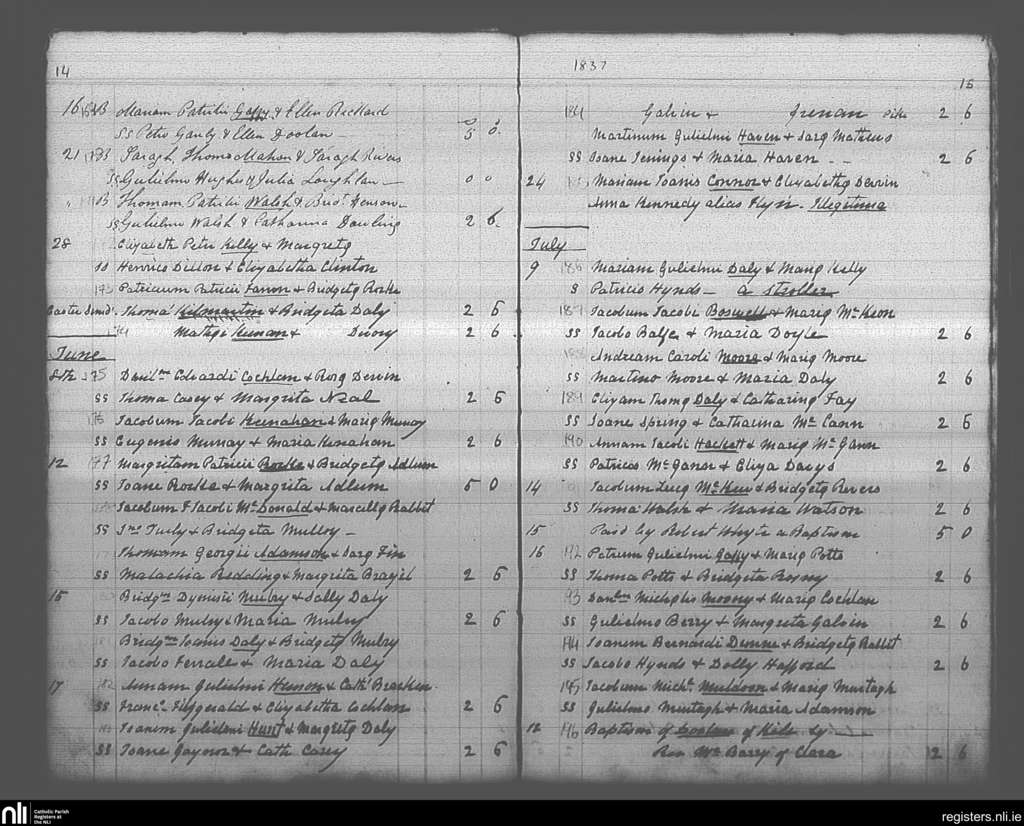 14
16 B Mariam Patritii Gaffy & Ellen Rickard
SS Petro Ganly & Ellen Doolan — 5 0
21 B Saragh, Thoma Mahon & Saragh Rivers
SS Gulielmo Hughes & Julia Loughlan — 0 0
" B Thomam Patritii Walsh & Brid. Henson
SS Gulielmo Walsh & Catharina Dowling 2 6
28 Elizabeth Petri Kelly & Margretq
SS Henrico Dillon & Elizabetha Clinton
Patricium Patricii Farron & Bridgetq Rorke
Easter Thoma Kilmartin & Bridgeta Daly 2 6
Mathqe Keenan & 2 6
June
8th 175 Edvardi Cochlan & Rosq Dervin
SS Thoma Casey & Margrita Neal 2 6
176 Jacobum Jacobi Keenahan & Mariq Murray
SS Eugenio Murray & Maria Kenahan 2 6
12 177 Margritam Patricii Rorke & Bridgetq Adlum
SS Joane Rorke & Margrita Adlum 5 0
Jacobum F Jacobi McDonald & Marcellq Rabbit
SS Jno Turly & Bridgeta Mulloy —
Thomam Georgii Adamson & Sarq Fin
SS Malachia Redding & Margrita Brazil 2 6
15 Bridgm Mulry & Sally Daly
SS Jacobo Mulry & Maria Mulry 2 6
Bridgm Joannis Daly & Bridgetq Mulry
SS Jacobo Ferrale & Maria Daly
17 182 Annam Gulielmi Henson & Cath Bracken
SS Franc. Fitzgerald & Elizabetha Cochlan 2 6
Joanem Gulielmi Hunt & Margritq Daly
SS Joane Gaynor & Cath Casey 2 6
1837
15
184 Galvin & Grenan 2 6
Martinum Gulielmi Haven & Sarq Mathews
SS Joane Jenings & Maria Haven — 2 6
24 Mariam Joanis Connor & Elizabethq Dervin
Anna Kennedy alias Flyn. Illegitima
July
9 186 Mariam Gulielmi Daly & Mariq Kelly
S Patricio Hynds — a stroller
187 Jacobum Jacobi Boswell & Mariq McKeon
SS Jacobo Balfe & Maria Doyle 2 6
Andream Caroli Moore & Mariq Moore
SS Martino Moore & Maria Daly 2 6
189 Elizam Thomq Daly & Catharinq Fay
SS Joane Spring & Catharina McCann 2 6
190 Annam Jacobi Hackett & Mariq McGann
SS Patricio McGann & Eliza Davys 2 6
14 Jacobum Lucq McKeu & Bridgetq Revers
SS Thoma Walsh & Maria Watson 2 6
15 Paid by Robert Whyte a Baptism 5 0
16 192 Patrum Gulielmi Gaffy & Mariq Potts
SS Thoma Potts & Bridgeta Rogny 2 6
193 Michaelis Moony & Mariq Cochlan
SS Gulielmo Berry & Margreta Galvin 2 6
194 Joanem Bernardi Dunne & Bridgetq Rabbit
SS Jacobo Hynds & Dolly Hafford 2 6
195 Jacobum Michl. Muldoon & Mariq Murtagh
SS Gulielmo Murtagh & Maria Adamson
18 196 Baptism of of by
Rev. Mr Barry of Clara 12 6
nli
Catholic Parish
Registers at
the NLI
registers.nli.ie